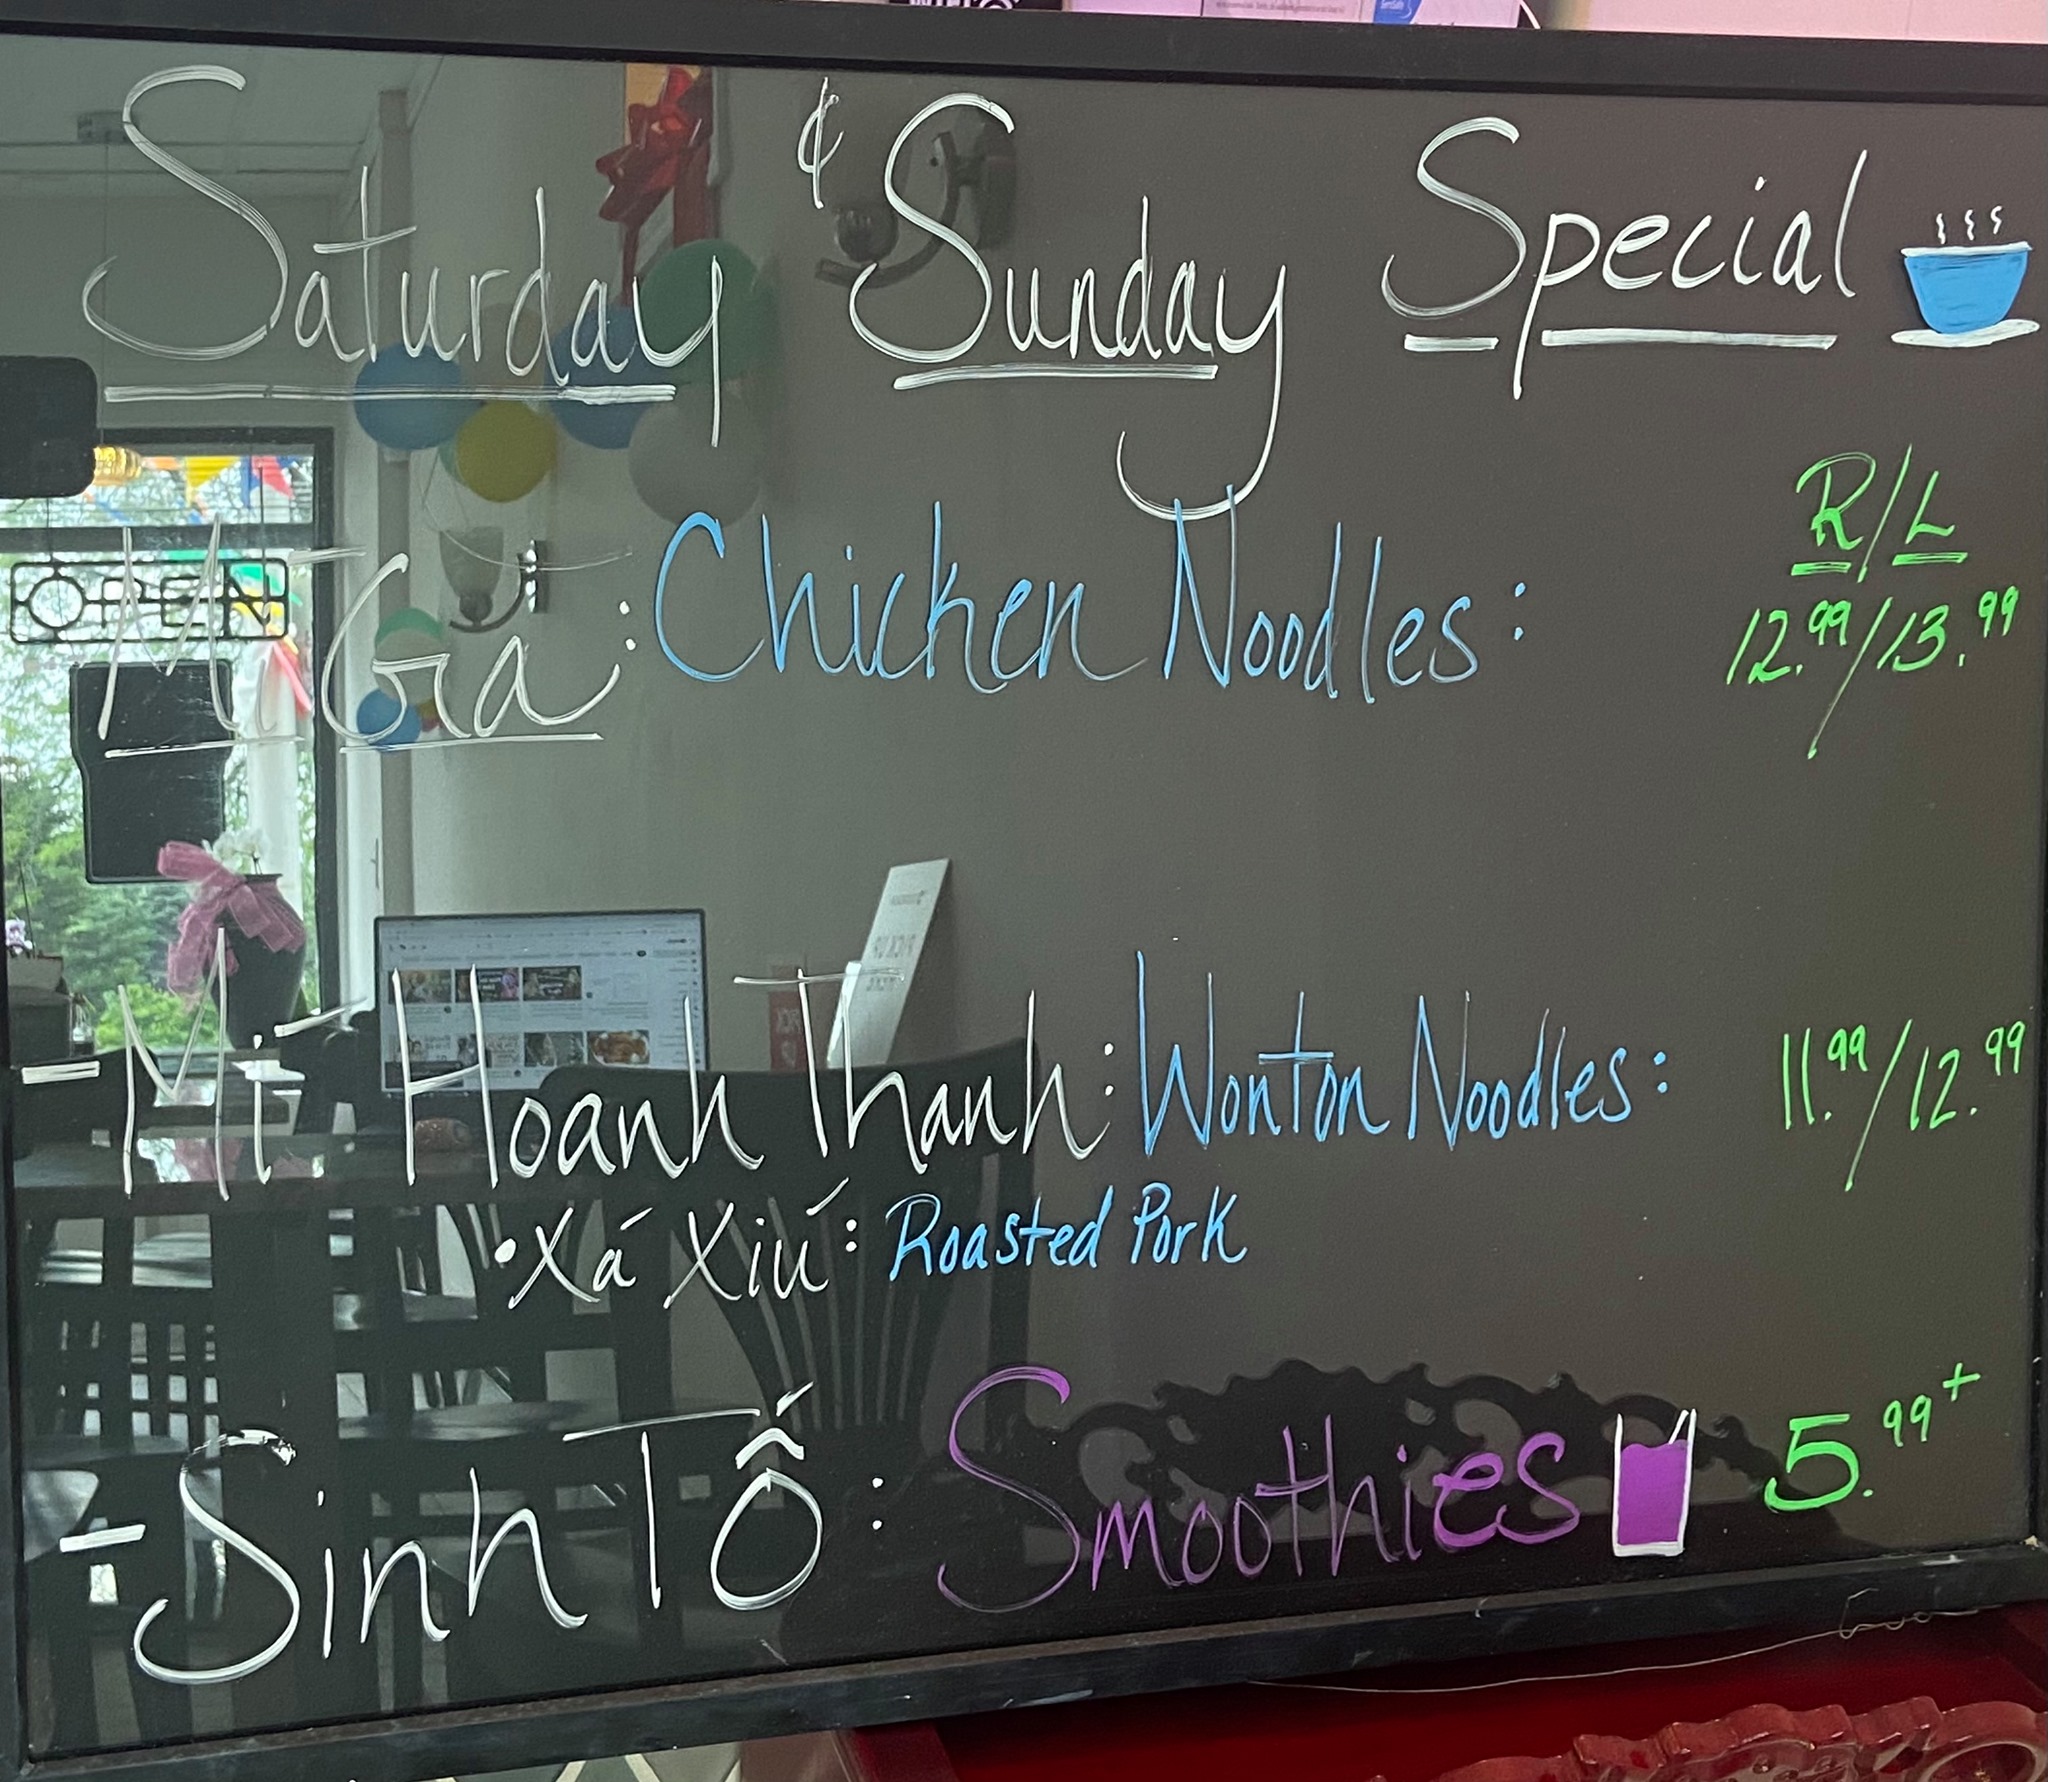 Saturday & Sunday Special
R/L
Mì Gà: Chicken Noodles: 12.99/13.99
-Mì Hoanh Thanh: Wonton Noodles: 11.99/12.99
•Xá Xíu: Roasted Pork
-Sinh Tố: Smoothies 5.99+
OPEN
PICK UP